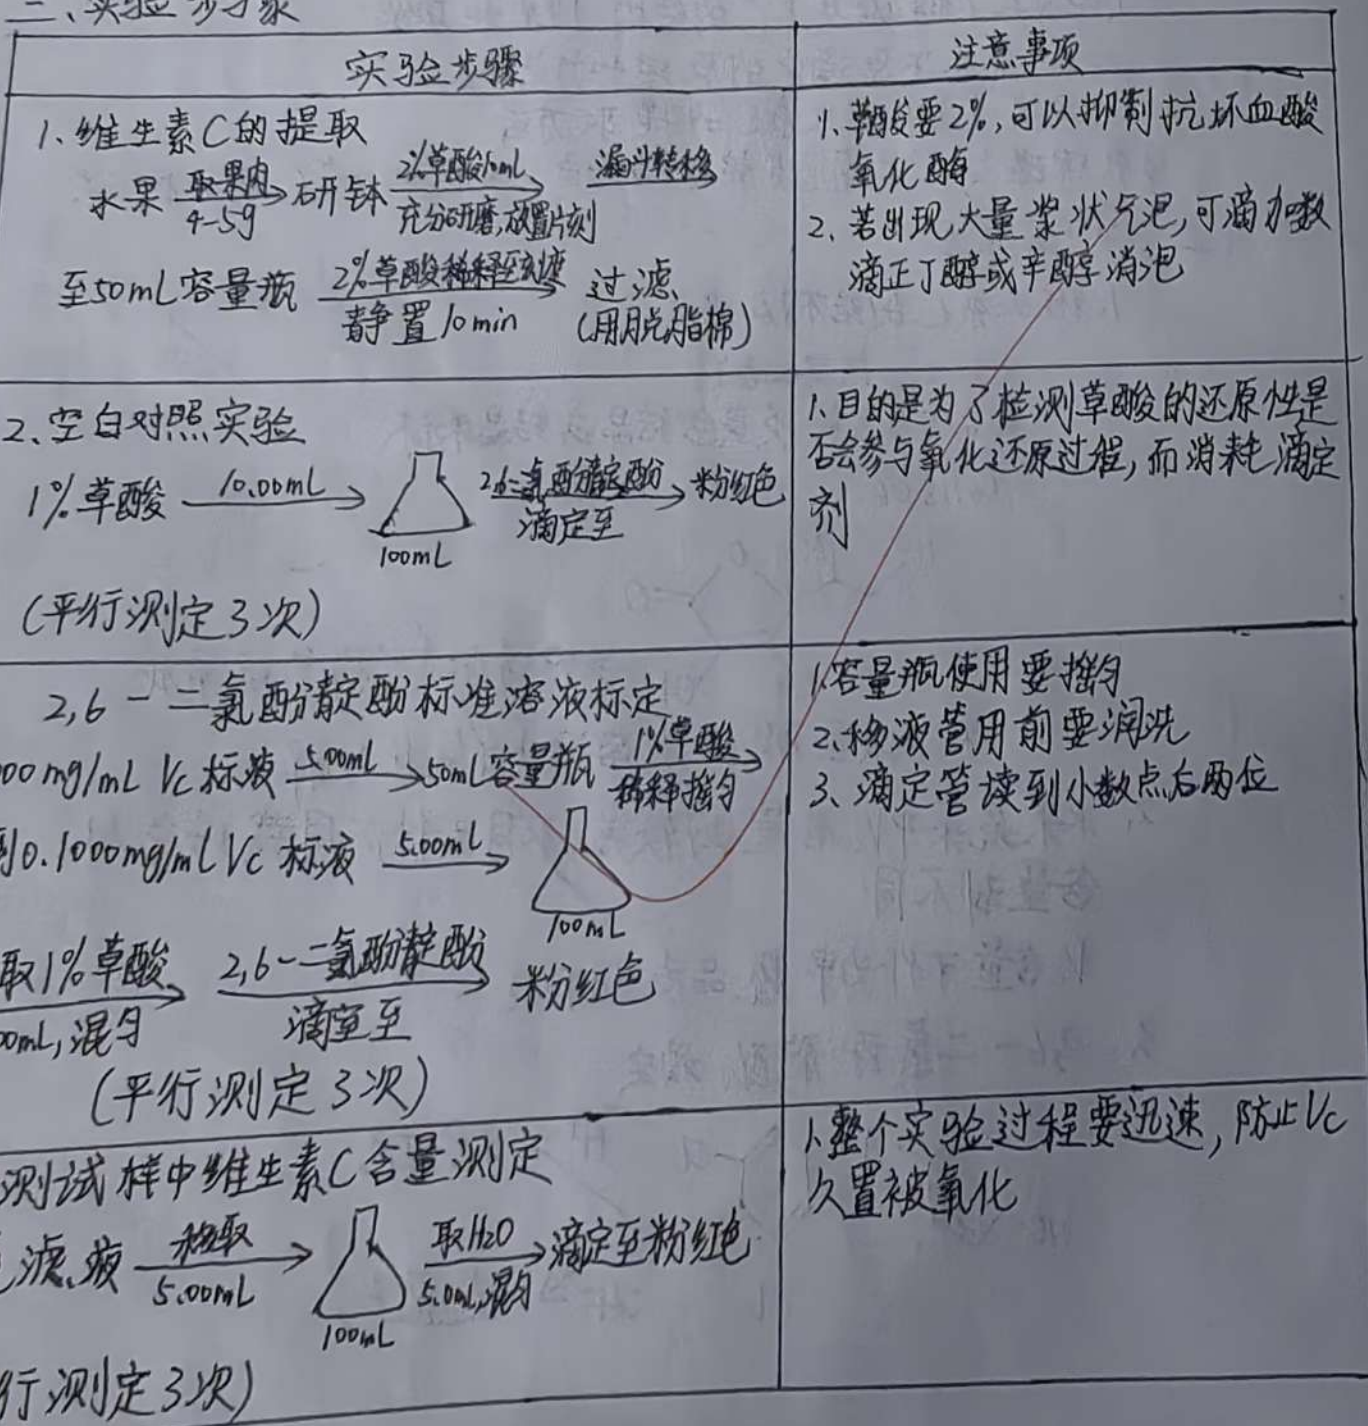 二、实验步骤
实验步骤
注意事项
1、维生素C的提取
水果 取果肉 4-5g 研钵 2%草酸10mL 充分研磨,放置片刻 漏斗转移
至50mL容量瓶 2%草酸稀释至刻度 静置10min 过滤
(用脱脂棉)
1、草酸要2%,可以抑制抗坏血酸
氧化酶
2、若出现大量浆状气泡,可滴加数
滴正丁醇或辛醇消泡
2、空白对照实验
1%草酸 10.00mL 100mL 2,6-二氯酚靛酚 滴定至 粉红色
(平行测定3次)
1、目的是为了检测草酸的还原性是
否会参与氧化还原过程,而消耗滴定
剂
2,6-二氯酚靛酚标准溶液标定
00mg/mL Vc标液 5.00mL 50mL容量瓶 1%草酸 稀释摇匀
到0.1000mg/mL Vc标液 5.00mL 100mL
取1%草酸 0mL,混匀 2,6-二氯酚靛酚 滴定至 粉红色
(平行测定3次)
1、容量瓶使用要摇匀
2、移液管用前要润洗
3、滴定管读到小数点后两位
测试样中维生素C含量测定
滤液 移取 5.00mL 100mL 取H2O 5.0mL,混匀 滴定至粉红色
行测定3次)
1、整个实验过程要迅速,防止Vc
久置被氧化